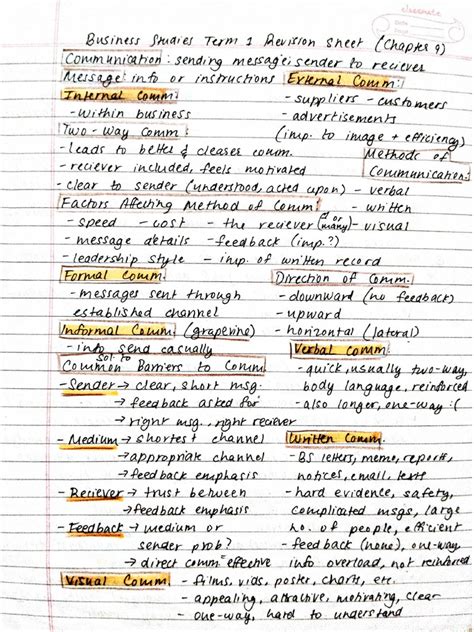 classmate
Date
Page
Business Studies Term 1 Revision Sheet (Chapter 9)
Communication: sending message: sender to reciever
Message: info or instructions
External Comm:
Internal Comm:
- suppliers - customers
- within business
- advertisements
Two-Way Comm:
(imp. to image + efficiency)
- leads to better & cleaser comm.
Methods of
Communication:
- reciever included, feels motivated
- clear to sender (understood, acted upon)
- verbal
Factors Affecting Method of Comm:
- written
- speed - cost - the reciever (1 or many)
- visual
- message details - feedback (imp.?)
- leadership style - imp. of written record
Formal Comm:
Direction of Comm.
- messages sent through
established channel
- downward (no feedback)
- upward
Informal Comm: (grapevine)
- horizontal (lateral)
- info send casually
Verbal Comm:
sol. to
Common Barriers to Comm:
- quick, usually two-way,
body language, reinforced
- Sender → clear, short msg.
→ feedback asked for
- also longer, one-way :(
→ right msg., right reciever
- Medium → shortest channel
Written Comm:
→ appropriate channel
- BS letters, memo, reports,
→ feedback emphasis
notices, email, texts
- Reciever → trust between
- hard evidence, safety,
→ feedback emphasis
complicated msgs, large
- Feedback → medium or
no. of people, efficient
sender prob?
- feedback (none), one-way,
→ direct comm = effective
info overload, not reinforced
Visual Comm.
- films, vids, poster, charts, etc.
- appealing, attractive, motivating, clear
- one-way, hard to understand